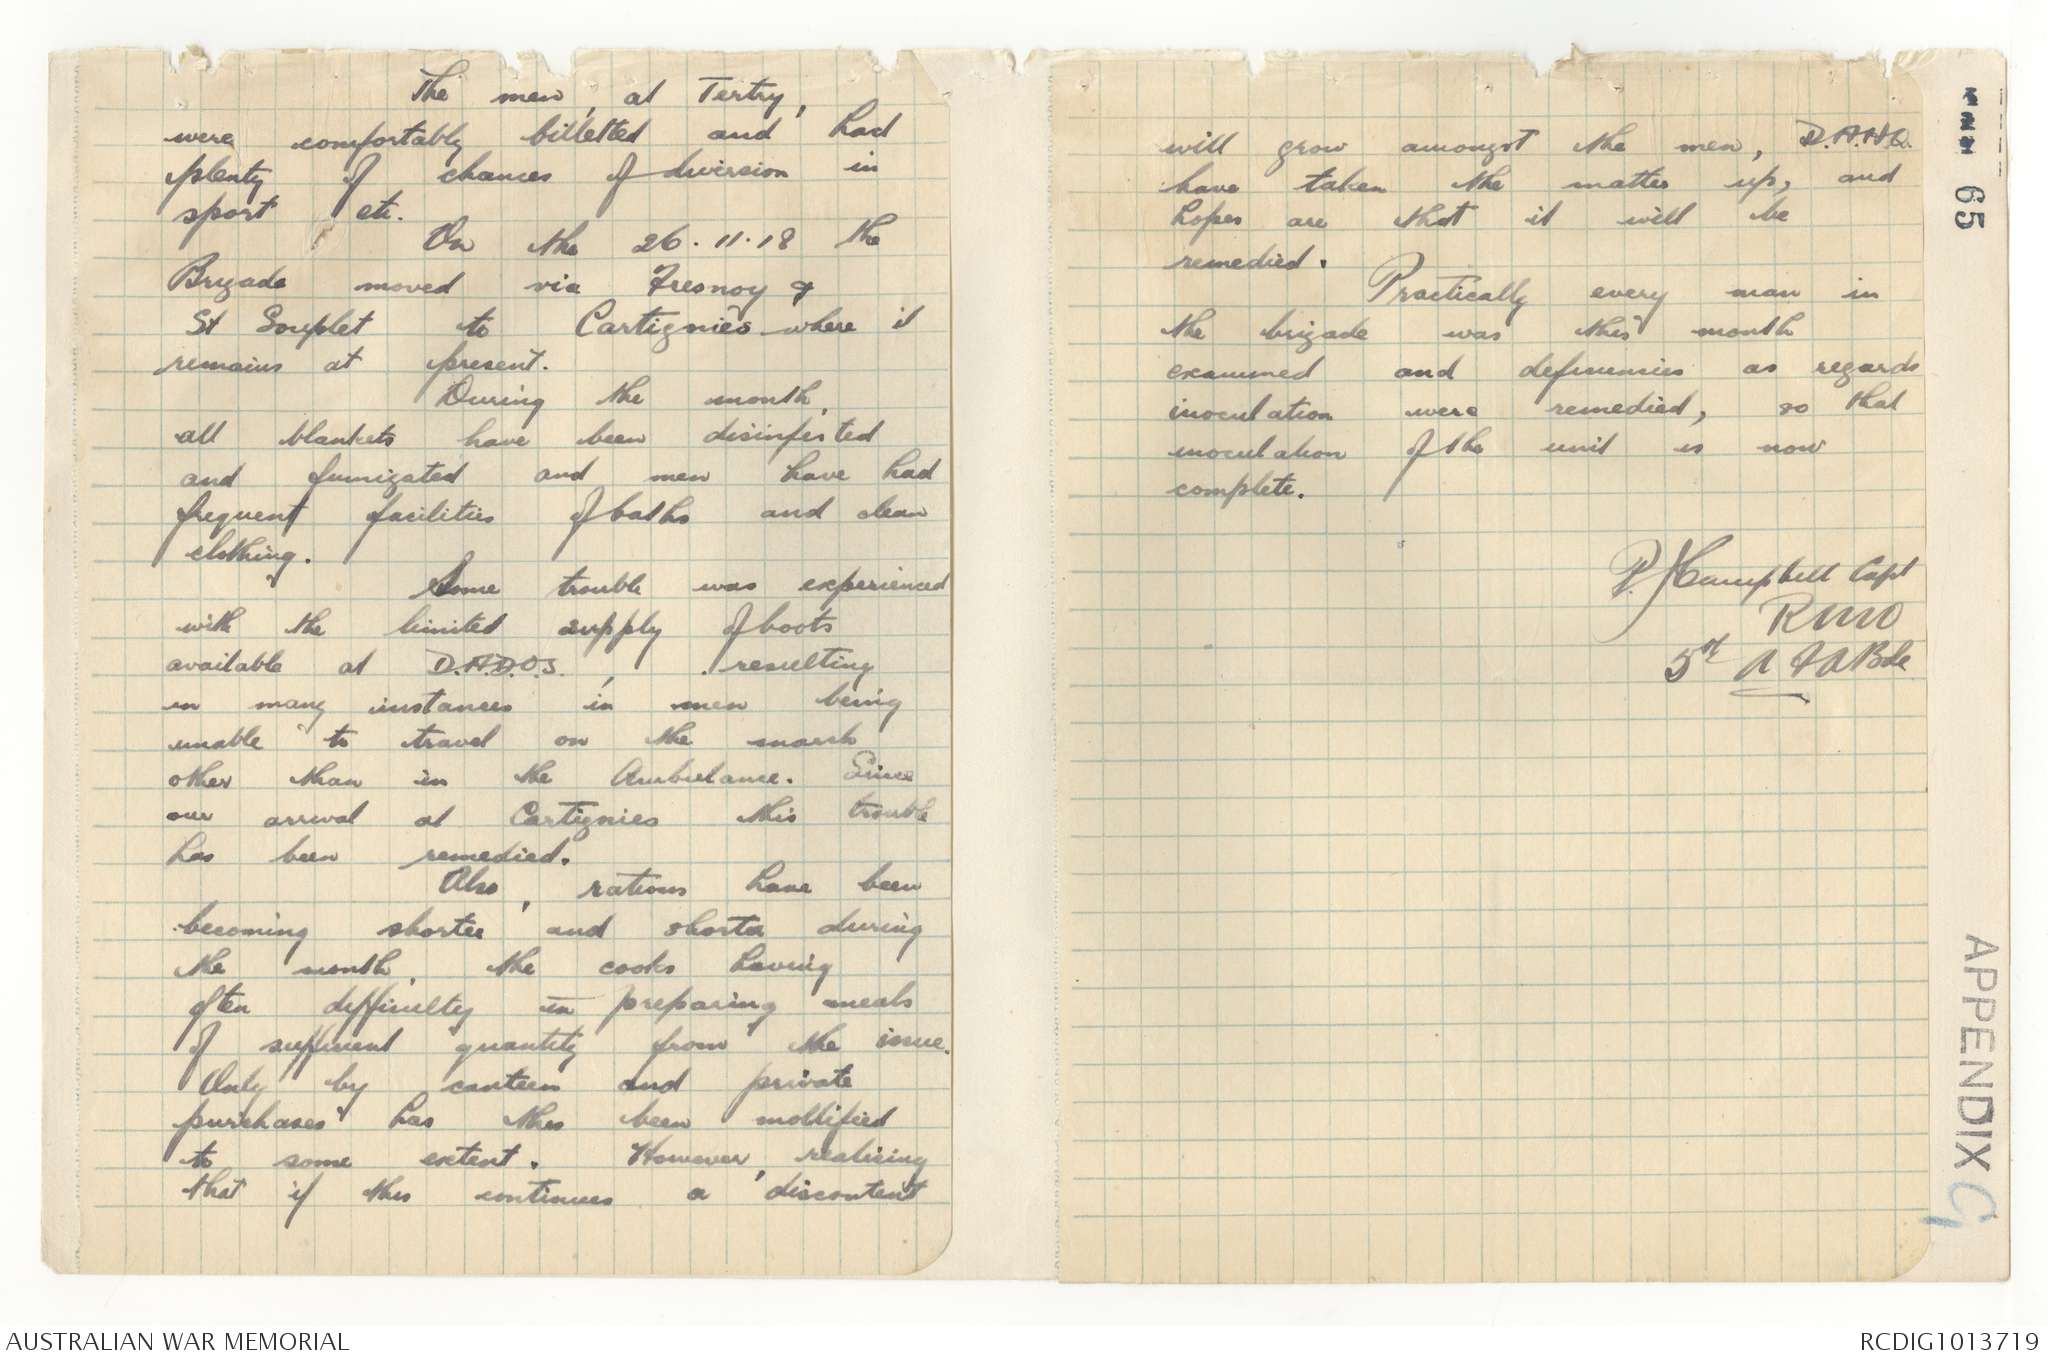 The men, at Tertry,
were comfortably billetted and had
plenty of chances of diversion in
sport etc.
On the 26.11.18 the
Brigade moved via Fresnoy &
St Souplet to Cartignies where it
remains at present.
During the month,
all blankets have been disinfected
and fumigated and men have had
frequent facilities of baths and clean
clothing.
Some trouble was experienced
with the limited supply of boots
available at D.A.D.O.S., resulting
in many instances in men being
unable to travel on the march
other than in the Ambulance. Since
our arrival at Cartignies this trouble
has been remedied.
Also, rations have been
becoming shorter and shorter during
the month, the cooks having
often difficulty in preparing meals
of sufficient quantity from the issue.
Only by canteen and private
purchases has this been mollified
to some extent. However, realising
that if this continues a discontent
will grow amongst the men, D.A.H.Q.
have taken the matter up, and
hopes are that it will be
remedied.
Practically every man in
the brigade was this month
examined and deficiencies as regards
inoculation were remedied, so that
inoculation of the unit is now
complete.
Campbell Capt
RMO
5th A FA Bde
65
APPENDIX G
AUSTRALIAN WAR MEMORIAL
RCDIG1013719